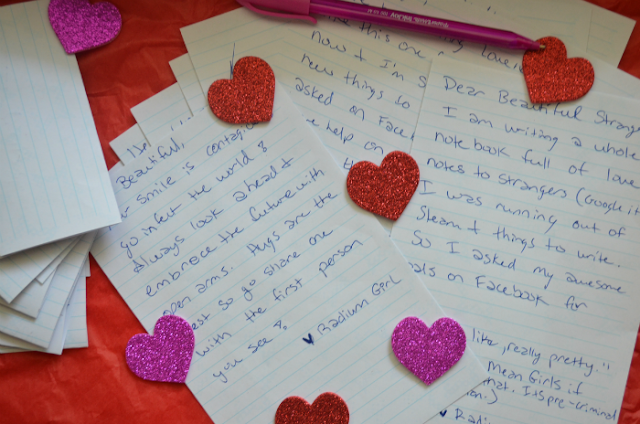 Beautiful,
smile is contagio
go infect the world!
Always look ahead &
embrace the future with
open arms. Hugs are the
est so go share one
with the first person
you see!
Radium Girl
like this one
now & I'm
new things to
asked on Face
help on
Dear Beautiful Strang
I am writing a whole
notebook full of love
notes to strangers (Google it
I was running out of
Steam & things to write.
So I asked my awesome
als on Facebook for
like, really pretty."
Mean Girls if
that. It's pre-criminal
Radiu